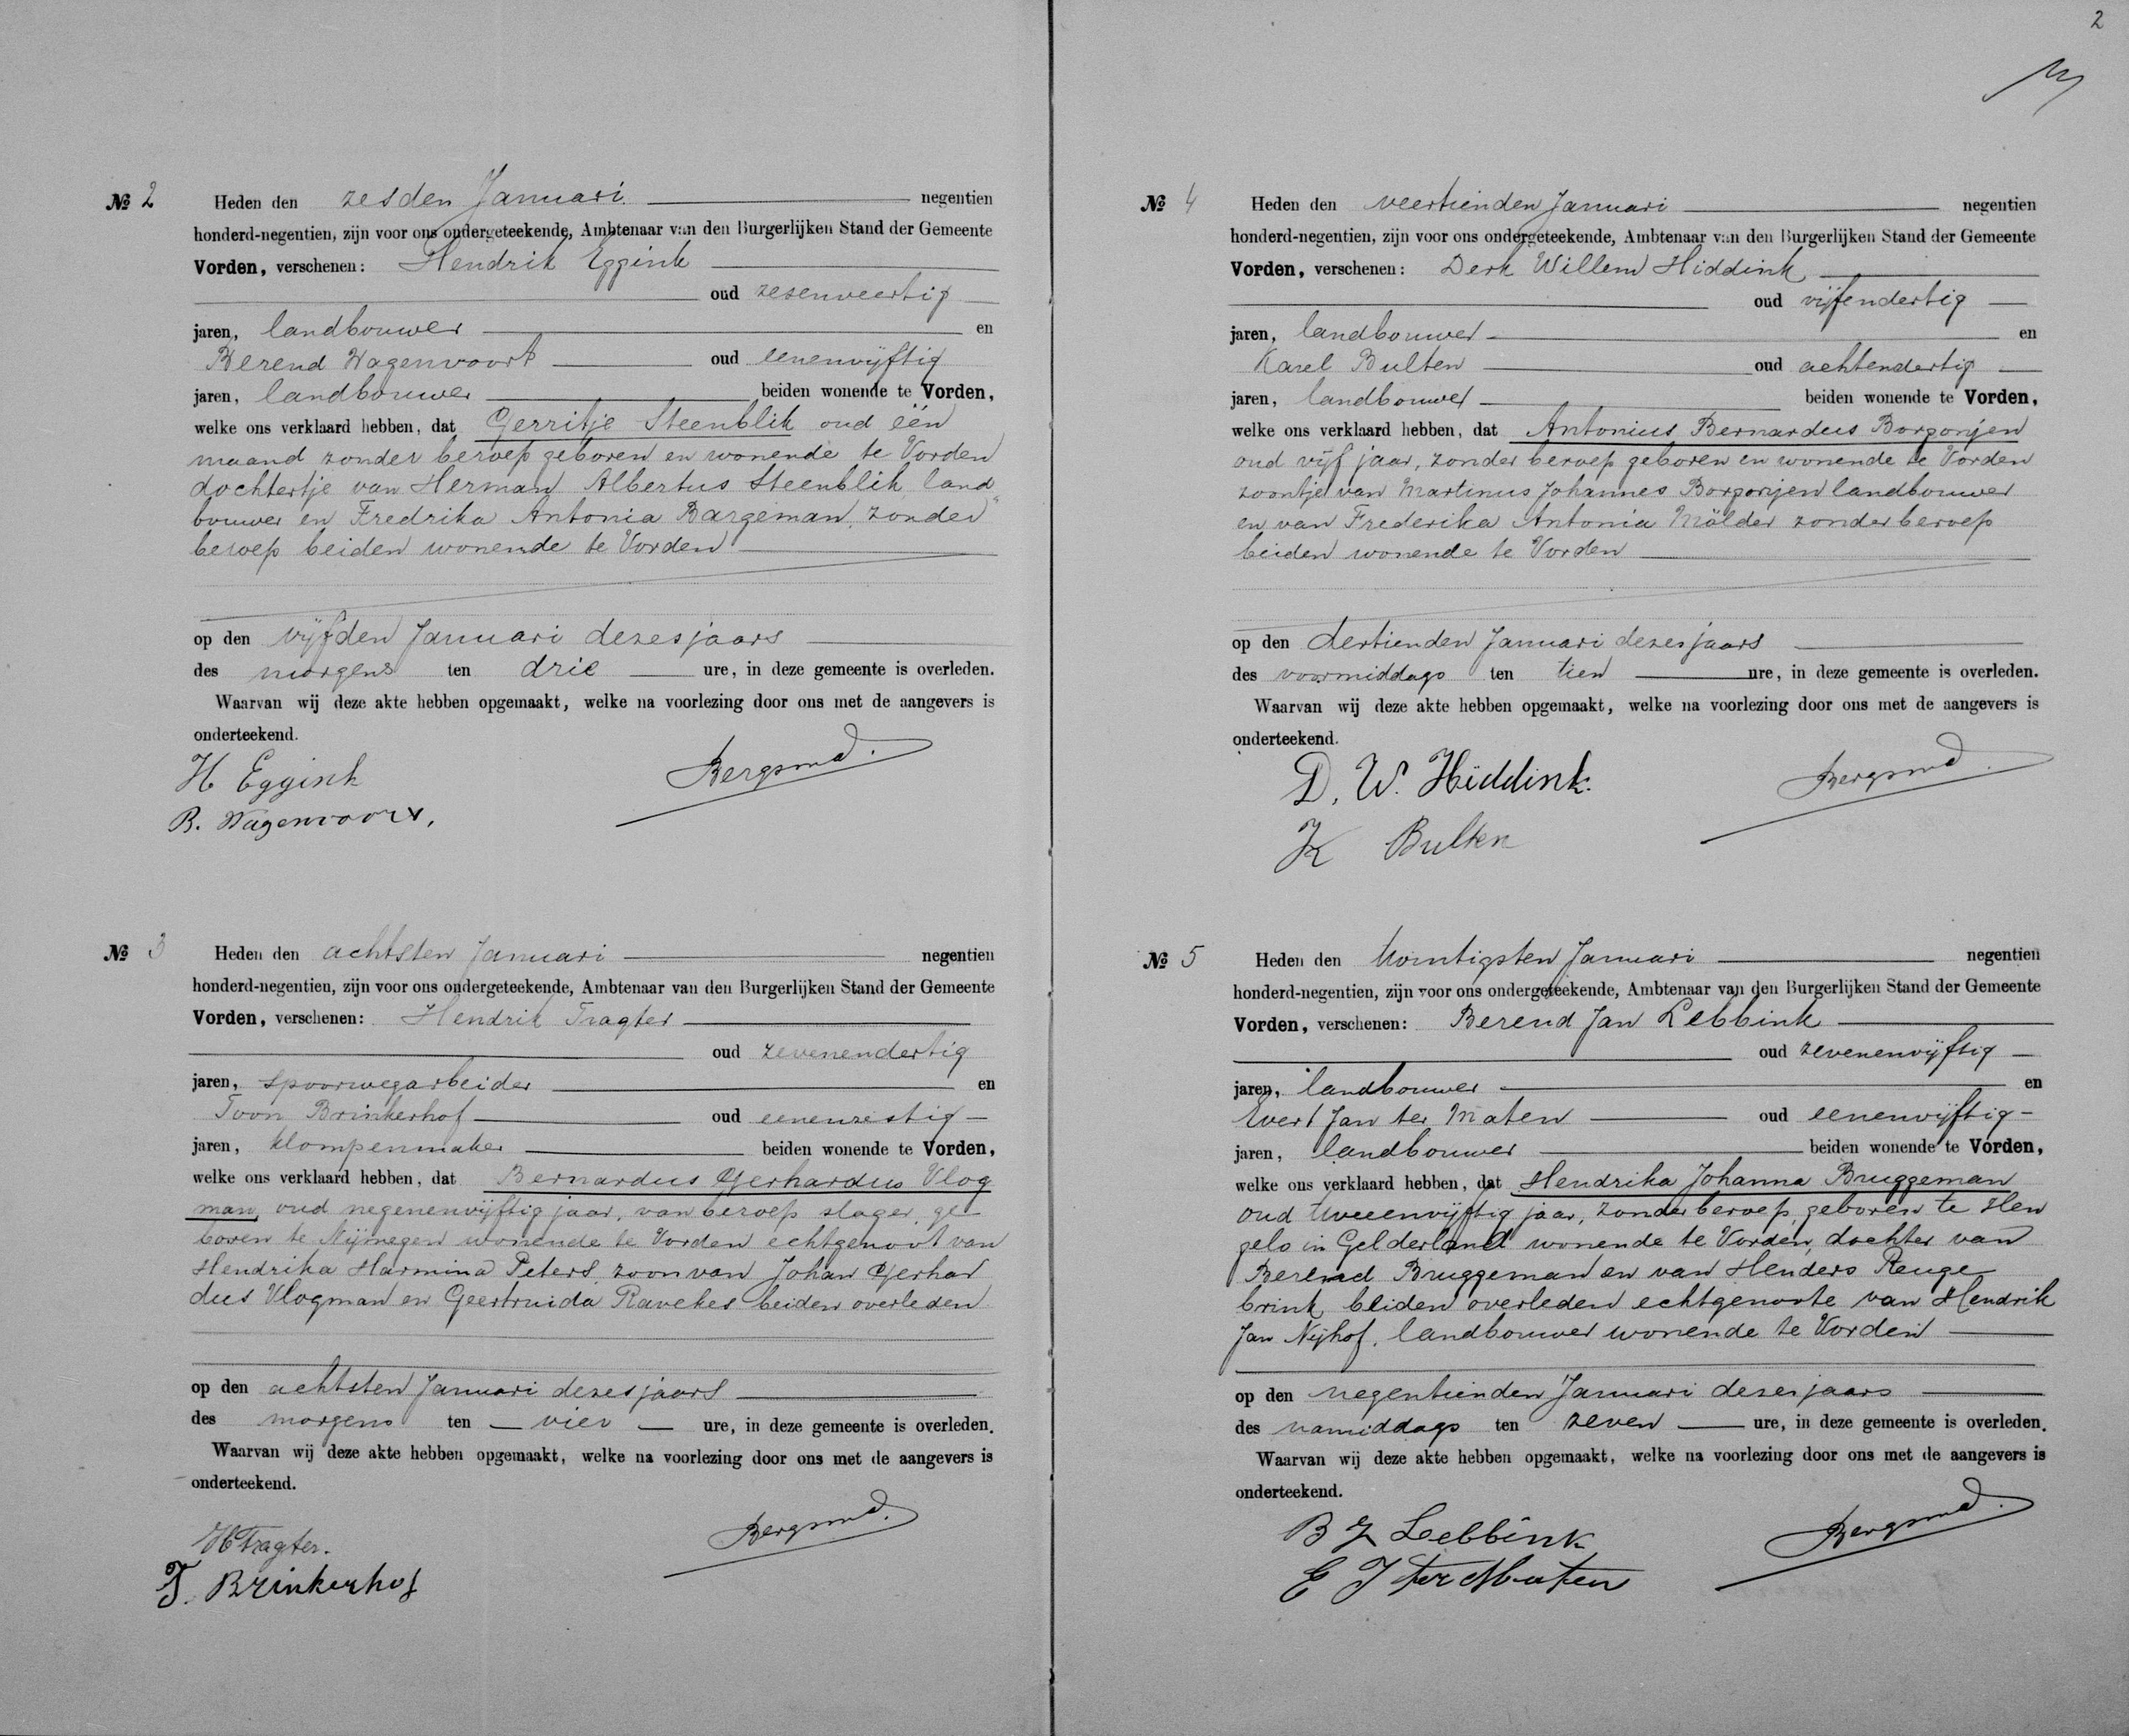 № 2 Heden den zesden Januari negentien
honderd-negentien, zijn voor ons ondergeteekende, Ambtenaar van den Burgerlijken Stand der Gemeente
Vorden, verschenen: Hendrik Eggink
oud zesenveertig
jaren, landbouwer en
Berend Wagenvoort oud eenenvijftig
jaren, landbouwer beiden wonende te Vorden,
welke ons verklaard hebben, dat Gerritje Steenblik oud één
maand zonder beroep geboren en wonende te Vorden
dochtertje van Herman Albertus Steenblik, land
bouwer en Fredrika Antonia Bargeman, zonder
beroep beiden wonende te Vorden
op den vijfden Januari dezes jaars
des morgens ten drie ure, in deze gemeente is overleden.
Waarvan wij deze akte hebben opgemaakt, welke na voorlezing door ons met de aangevers is
onderteekend.
H Eggink
B. Wagenvoort.
№ 3 Heden den achtsten Januari negentien
honderd-negentien, zijn voor ons ondergeteekende, Ambtenaar van den Burgerlijken Stand der Gemeente
Vorden, verschenen: Hendrik Tragter
oud zevenendertig
jaren, spoorwegarbeider en
Toon Brinkerhof oud eenenzestig
jaren, klompenmaker beiden wonende te Vorden,
welke ons verklaard hebben, dat Bernardus Gerhardus Vlog
man, oud negenenvijftig jaar, van beroep slager, ge
boren te Nijmegen wonende te Vorden echtgenoot van
Hendrika Harmina Peters, zoon van Johan Gerhar
dus Vlogman en Geertruida Ravekes beiden overleden
op den achtsten Januari dezes jaars
des morgens ten vier ure, in deze gemeente is overleden.
Waarvan wij deze akte hebben opgemaakt, welke na voorlezing door ons met de aangevers is
onderteekend.
H Tragter.
T. Brinkerhof
2
№ 4 Heden den veertienden Januari negentien
honderd-negentien, zijn voor ons ondergeteekende, Ambtenaar van den Burgerlijken Stand der Gemeente
Vorden, verschenen: Derk Willem Hiddink
oud vijfendertig
jaren, landbouwer en
Karel Bulten oud achtendertig
jaren, landbouwer beiden wonende te Vorden,
welke ons verklaard hebben, dat Antonius Bernardus Borgonjen
oud vijf jaar, zonder beroep geboren en wonende te Vorden
zoontje van Martinus Johannes Borgonjen landbouwer
en van Frederika Antonia Mölder zonder beroep
beiden wonende te Vorden
op den dertienden Januari dezes jaars
des voormiddags ten tien ure, in deze gemeente is overleden.
Waarvan wij deze akte hebben opgemaakt, welke na voorlezing door ons met de aangevers is
onderteekend.
D. W. Hiddink.
K Bulten
№ 5 Heden den twintigsten Januari negentien
honderd-negentien, zijn voor ons ondergeteekende, Ambtenaar van den Burgerlijken Stand der Gemeente
Vorden, verschenen: Berend Jan Lebbink
oud zevenenvijftig
jaren, landbouwer en
Evert Jan ter Maten oud eenenvijftig
jaren, landbouwer beiden wonende te Vorden,
welke ons verklaard hebben, dat Hendrika Johanna Bruggeman
oud tweeenvijftig jaar, zonder beroep, geboren te Hen
gelo in Gelderland wonende te Vorden, dochter van
Berend Bruggeman en van Henders Reuge
brink, beiden overleden echtgenoote van Hendrik
Jan Nijhof, landbouwer wonende te Vorden
op den negentienden Januari dezes jaars
des namiddags ten zeven ure, in deze gemeente is overleden.
Waarvan wij deze akte hebben opgemaakt, welke na voorlezing door ons met de aangevers is
onderteekend.
B J Lebbink
E J ter Maten